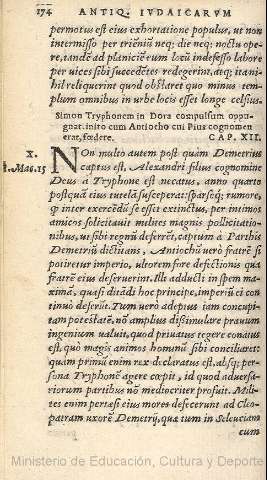 174 ANTIQ. IVDAICARVM
permotus est eius exhortatione populus, ut non
intermisso per triēniū neq; die neq; noctu ope
re, tandē ad planiciē eum locū indefesso labore
per uices sibi succedētes redegerint, atq; ita ni-
hil reliquerint quod obstaret quo minus tem-
plum omnibus in urbe locis esset longe celsius.
Simon Tryphonem in Dora compulsum oppu-
gnat, inito cum Antiocho cui Pius cognomen
erat, fœdere. CAP. XII.
X.
1. Mac. 15
NOn multo autem post quàm Demetrius
captus est, Alexandri filius cognomine
Deus à Tryphone est necatus, anno quarto
postquā eius tutelā susceperat: sparsoq; rumore,
ꝙ inter exercēdū se esset extinctus, per intimos
amicos solicitauit milites magnis pollicitatio-
nibus, ut sibi regnū deferrēt, captum à Parthis
Demetriū dictitans, Antiochū uerò fratrē si
potiretur imperio, ultorem fore defectionis qua
fratrē eius deseruerint. Illi adducti in spem ma-
ximā, quasi ditādi hoc principe, imperiū ei con
tinuò deferūt. Tum uerò adeptus iam concupi-
tam potestatē, nō amplius dissimulare prauum
ingenium ualuit, quod priuatus tegere conatus
est, quò magis animos hominū sibi conciliaret:
quàm primū enim rex declaratus est, absq; per-
sona Tryphonē agere cœpit, id quod aduersa-
riorum partibus nō mediocriter profuit. Mili-
tes enim pertæsi eius mores defecerunt ad Cleo-
patram uxorē Demetrij, quæ tum in Seleuciam
cum
Ministerio de Educación, Cultura y Deporte